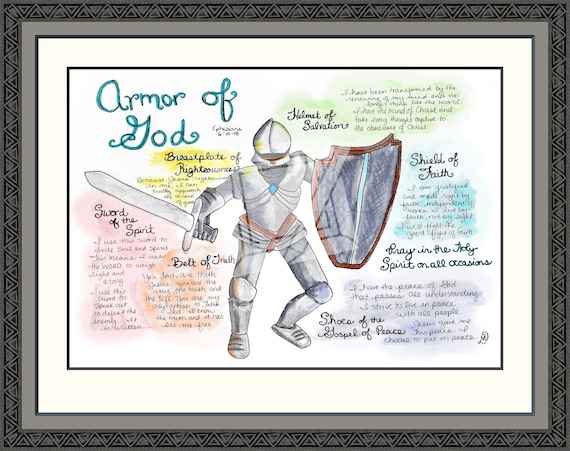 Armor of
God
Ephesians
6:10-18
Helmet of
Salvation
I have been transformed by the
renewing of my mind and no
longer think like the world.
I have the mind of Christ and
take every thought captive to
the obedience of Christ.
Breastplate of
Righteousness
Because I have righteousness
in me I can
boldly approach
throne
Shield of
Faith
I am justified
and made right by
faith, independent of
works. I live by
faith, not by sight.
I will fight the
good fight of faith.
Sword
of the
Spirit
I use this sword to
divide soul and spirit
This means I use
the WORD to weigh
right and
wrong
I use this
sword to
speak out
to defeat the
enemy. It
is written
Belt of Truth
You God, are truth
Jesus, you are the
way, the truth and
the life. You are my
only access to
God. I know
the truth and it has
set me free
Pray in the Holy
Spirit on all occasions
I have the peace of God
that passes all understanding.
I strive to live in peace
with all people
Shoes of the
Gospel of Peace
Jesus gave me
this peace. I
choose to put on peace.